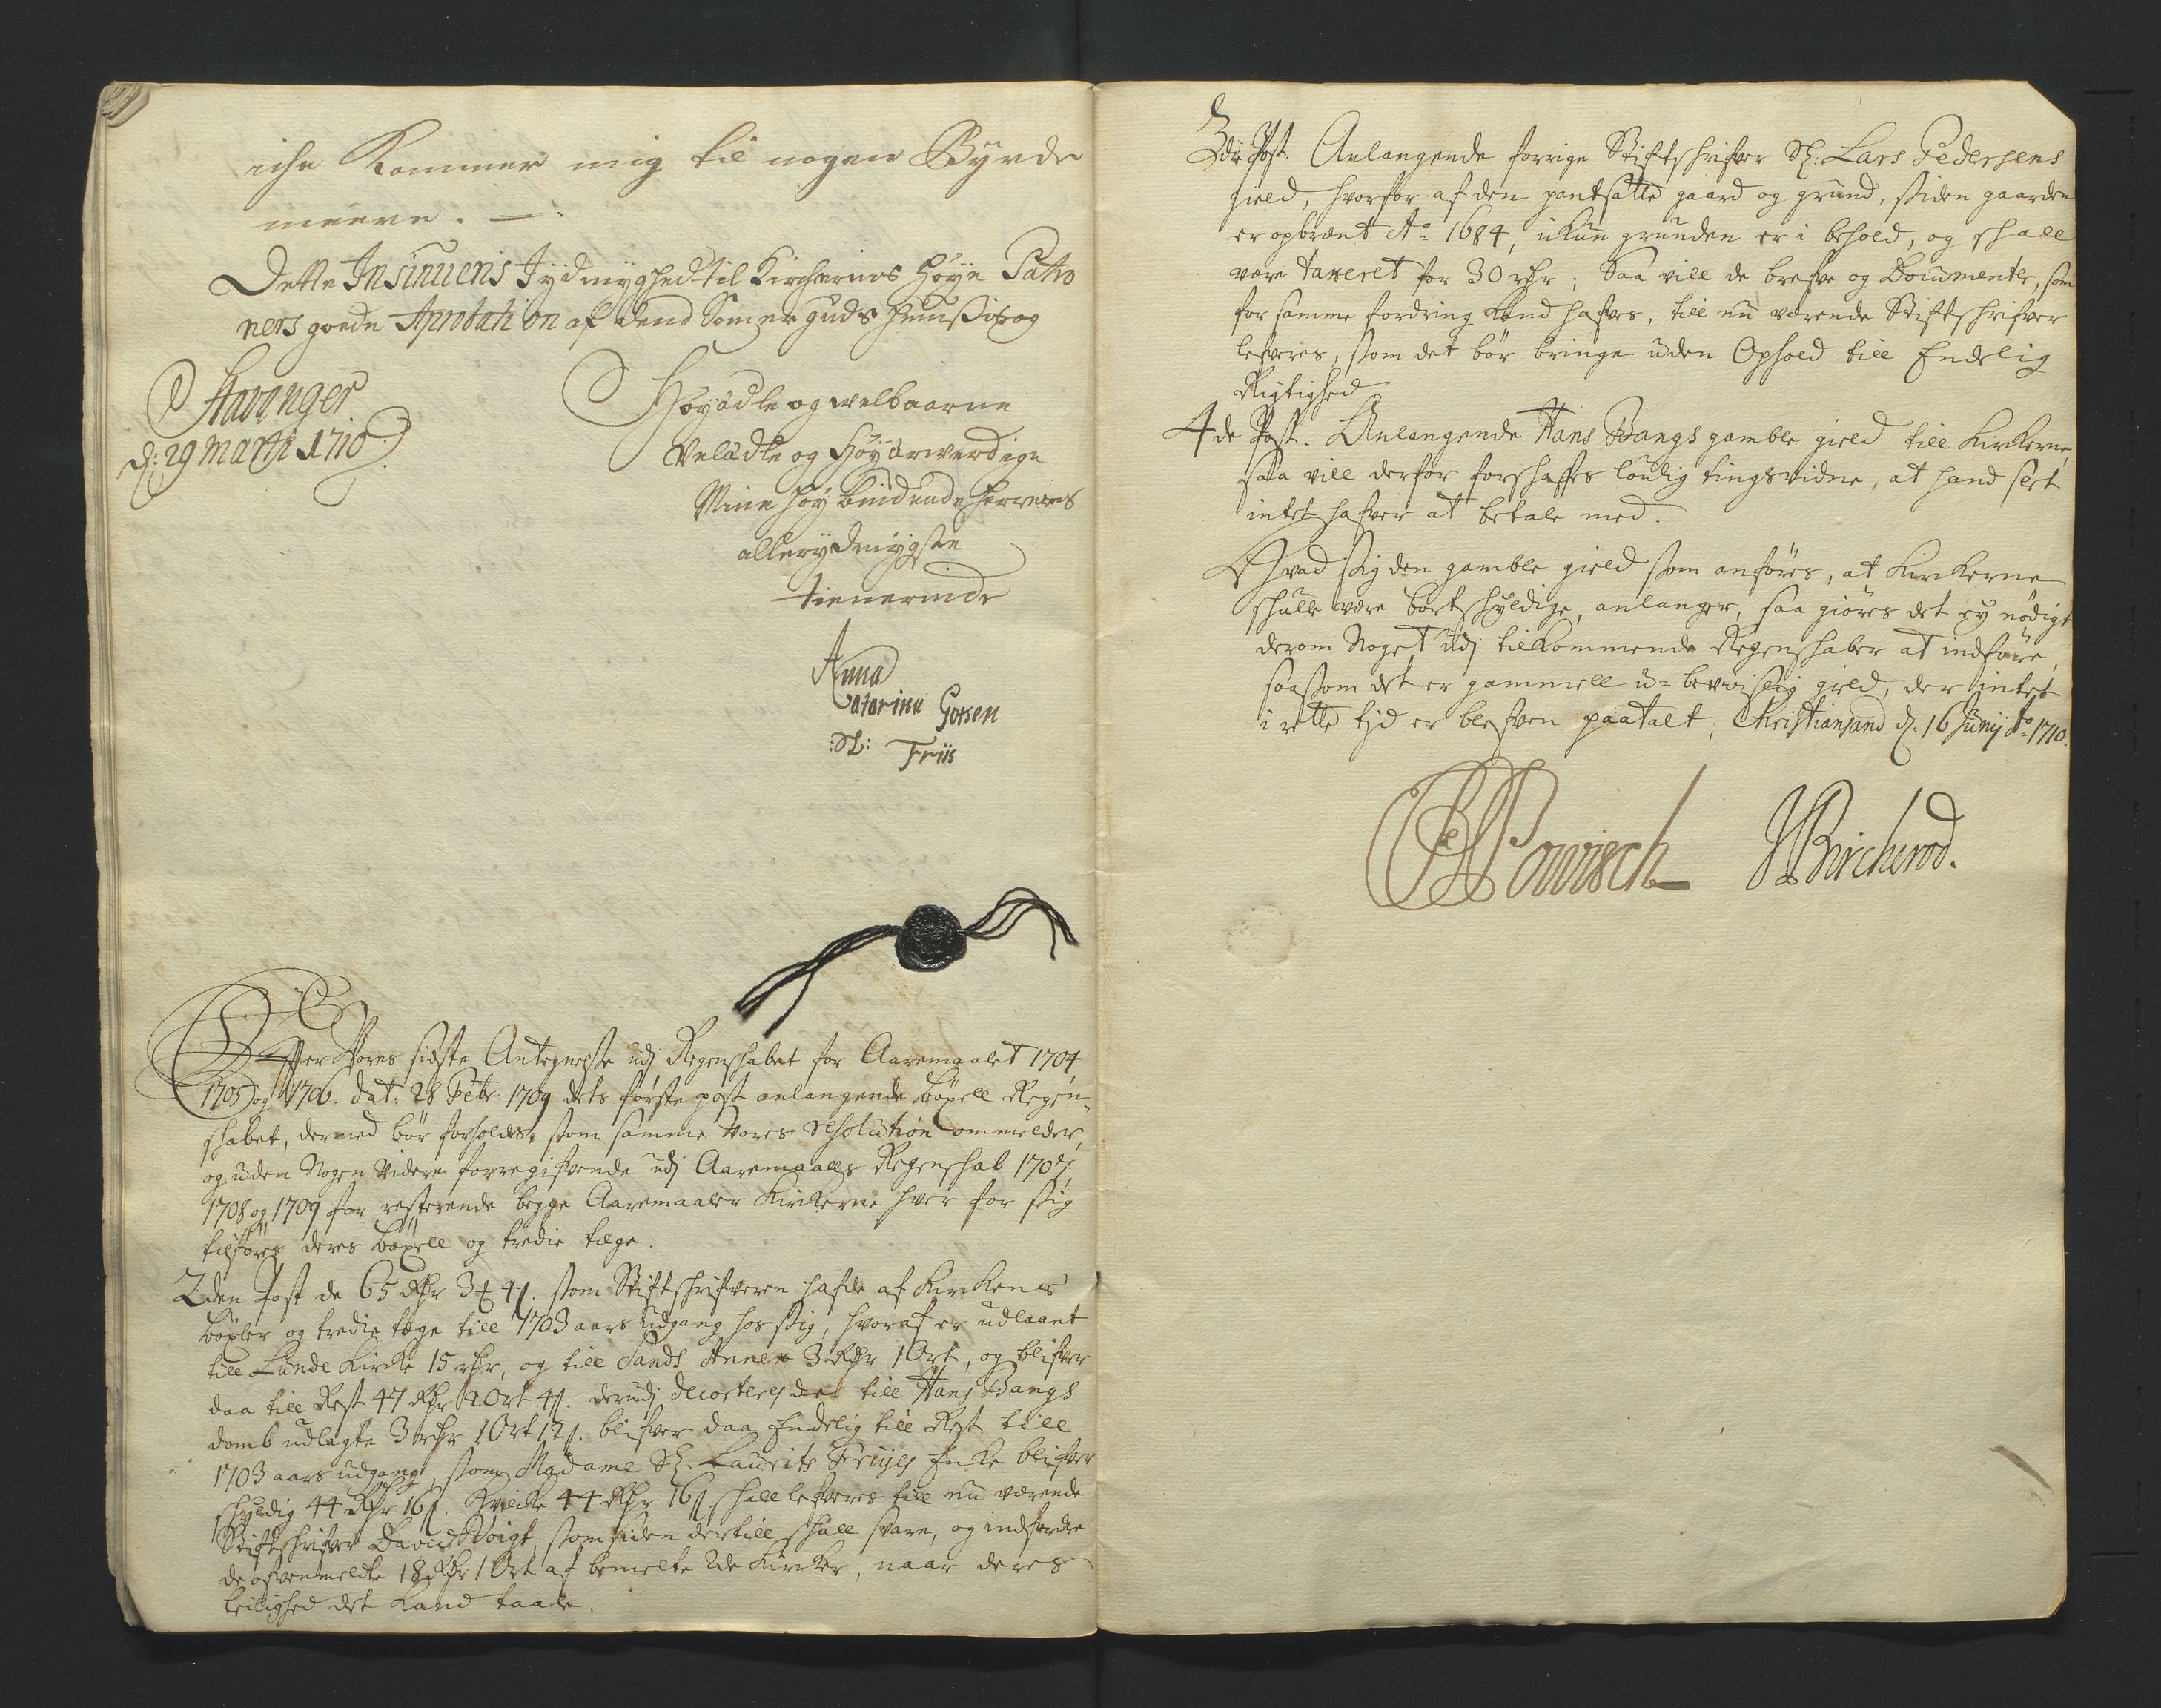 iche Kommer mig til nogen Byrde
meere. —
Dette Insinueris J ydmyghed til Kirchernes Høye Patro
ners goede Aprobation af dend Som er Guds huuses og
Stavanger
d: 29 Marti 1710
Høyædle og welbaarne
Velædle og Høyærwerdige
Mine høy bindende Herrers
allerydmygste
tienerinde
Anna
Catarina Gotsen
Sl: Friis
Efter Vores sidste Antegnelse udj Regenskabet for Aaremaalet 1704,
1705 og 1706. dat: 28 Febr: 1709 dets første post anlangende böxell Regen-
skabet, dermed bør forholdes, som samme Vores resolution ommelder,
og uden Nogen Videre forregifvende udj Aaremaals Regenskab 1707,
1708 og 1709 for resterende begge Aaremaaler Kirkerne hver for sig
tilføres deres böxell og tredie tage.
2den Post de 65 Rdr 3 ort 4 s. som Stiftschrifveren hafde af Kirkens
böxler og tredie tage till 1703 aars udgang hos sig, hvoraf er udlaant
till Lunde Kirke 15 rdr, og till Sands Annex 3 Rdr 1 Ort, og blifver
daa till Rest 47 Rdr 2 Ort 4 s. derudj decorteres der till Hans Bangs
domb udlagte 3 rdr 1 Ort 12 s. blifver daa Endelig till Rest till
1703 aars udgang, som Madame Sl. Laurits Friises Enke blifver
schyldig 44 Rdr 16 s. Hvilke 44 Rdr 16 s schall lefveres till nu værende
Stiftschrifver David Voigt, som siden dertill schall svare, og indfordre
de ofvenmeldte 18 Rdr 1 Ort af bemelte 2de Kirker, naar deres
leilighed det Kand taale.
3die Post. Anlangende forrige Stiftschrifver Sl: Lars Pedersens
gield, hvorfor af den pantsatte gaard og grund, siden gaarden
er opbrænt Ao 1684, ikun grunden er i behold, og schall
være taxeret for 30 rdr; Saa vill de brefve og Documenter, som
for samme fordring Kand hafves, till nu værende Stiftschrifver
lefveres, som det bør bringe uden Ophold till Endelig
Rigtighed
4de Post. Anlangende Hans Bangs gamble gield till Kirkerne,
saa vill derfor forschaffes lovlig tingsvidne, at hand slet
intet hafver at betale med.
Hvad sig den gamble gield som anføres, at Kirkerne
schulle være bortschyldige, anlanger, saa giøres det ey nødigt
derom Noget udj tilkommende Regenschaber at indføre,
saasom det er gammell u-bevislig gield, der intet
i rette tid er blefven paatalt, Christiansand d. 16 Junij Ao 1710.
Powisch JBircherod.